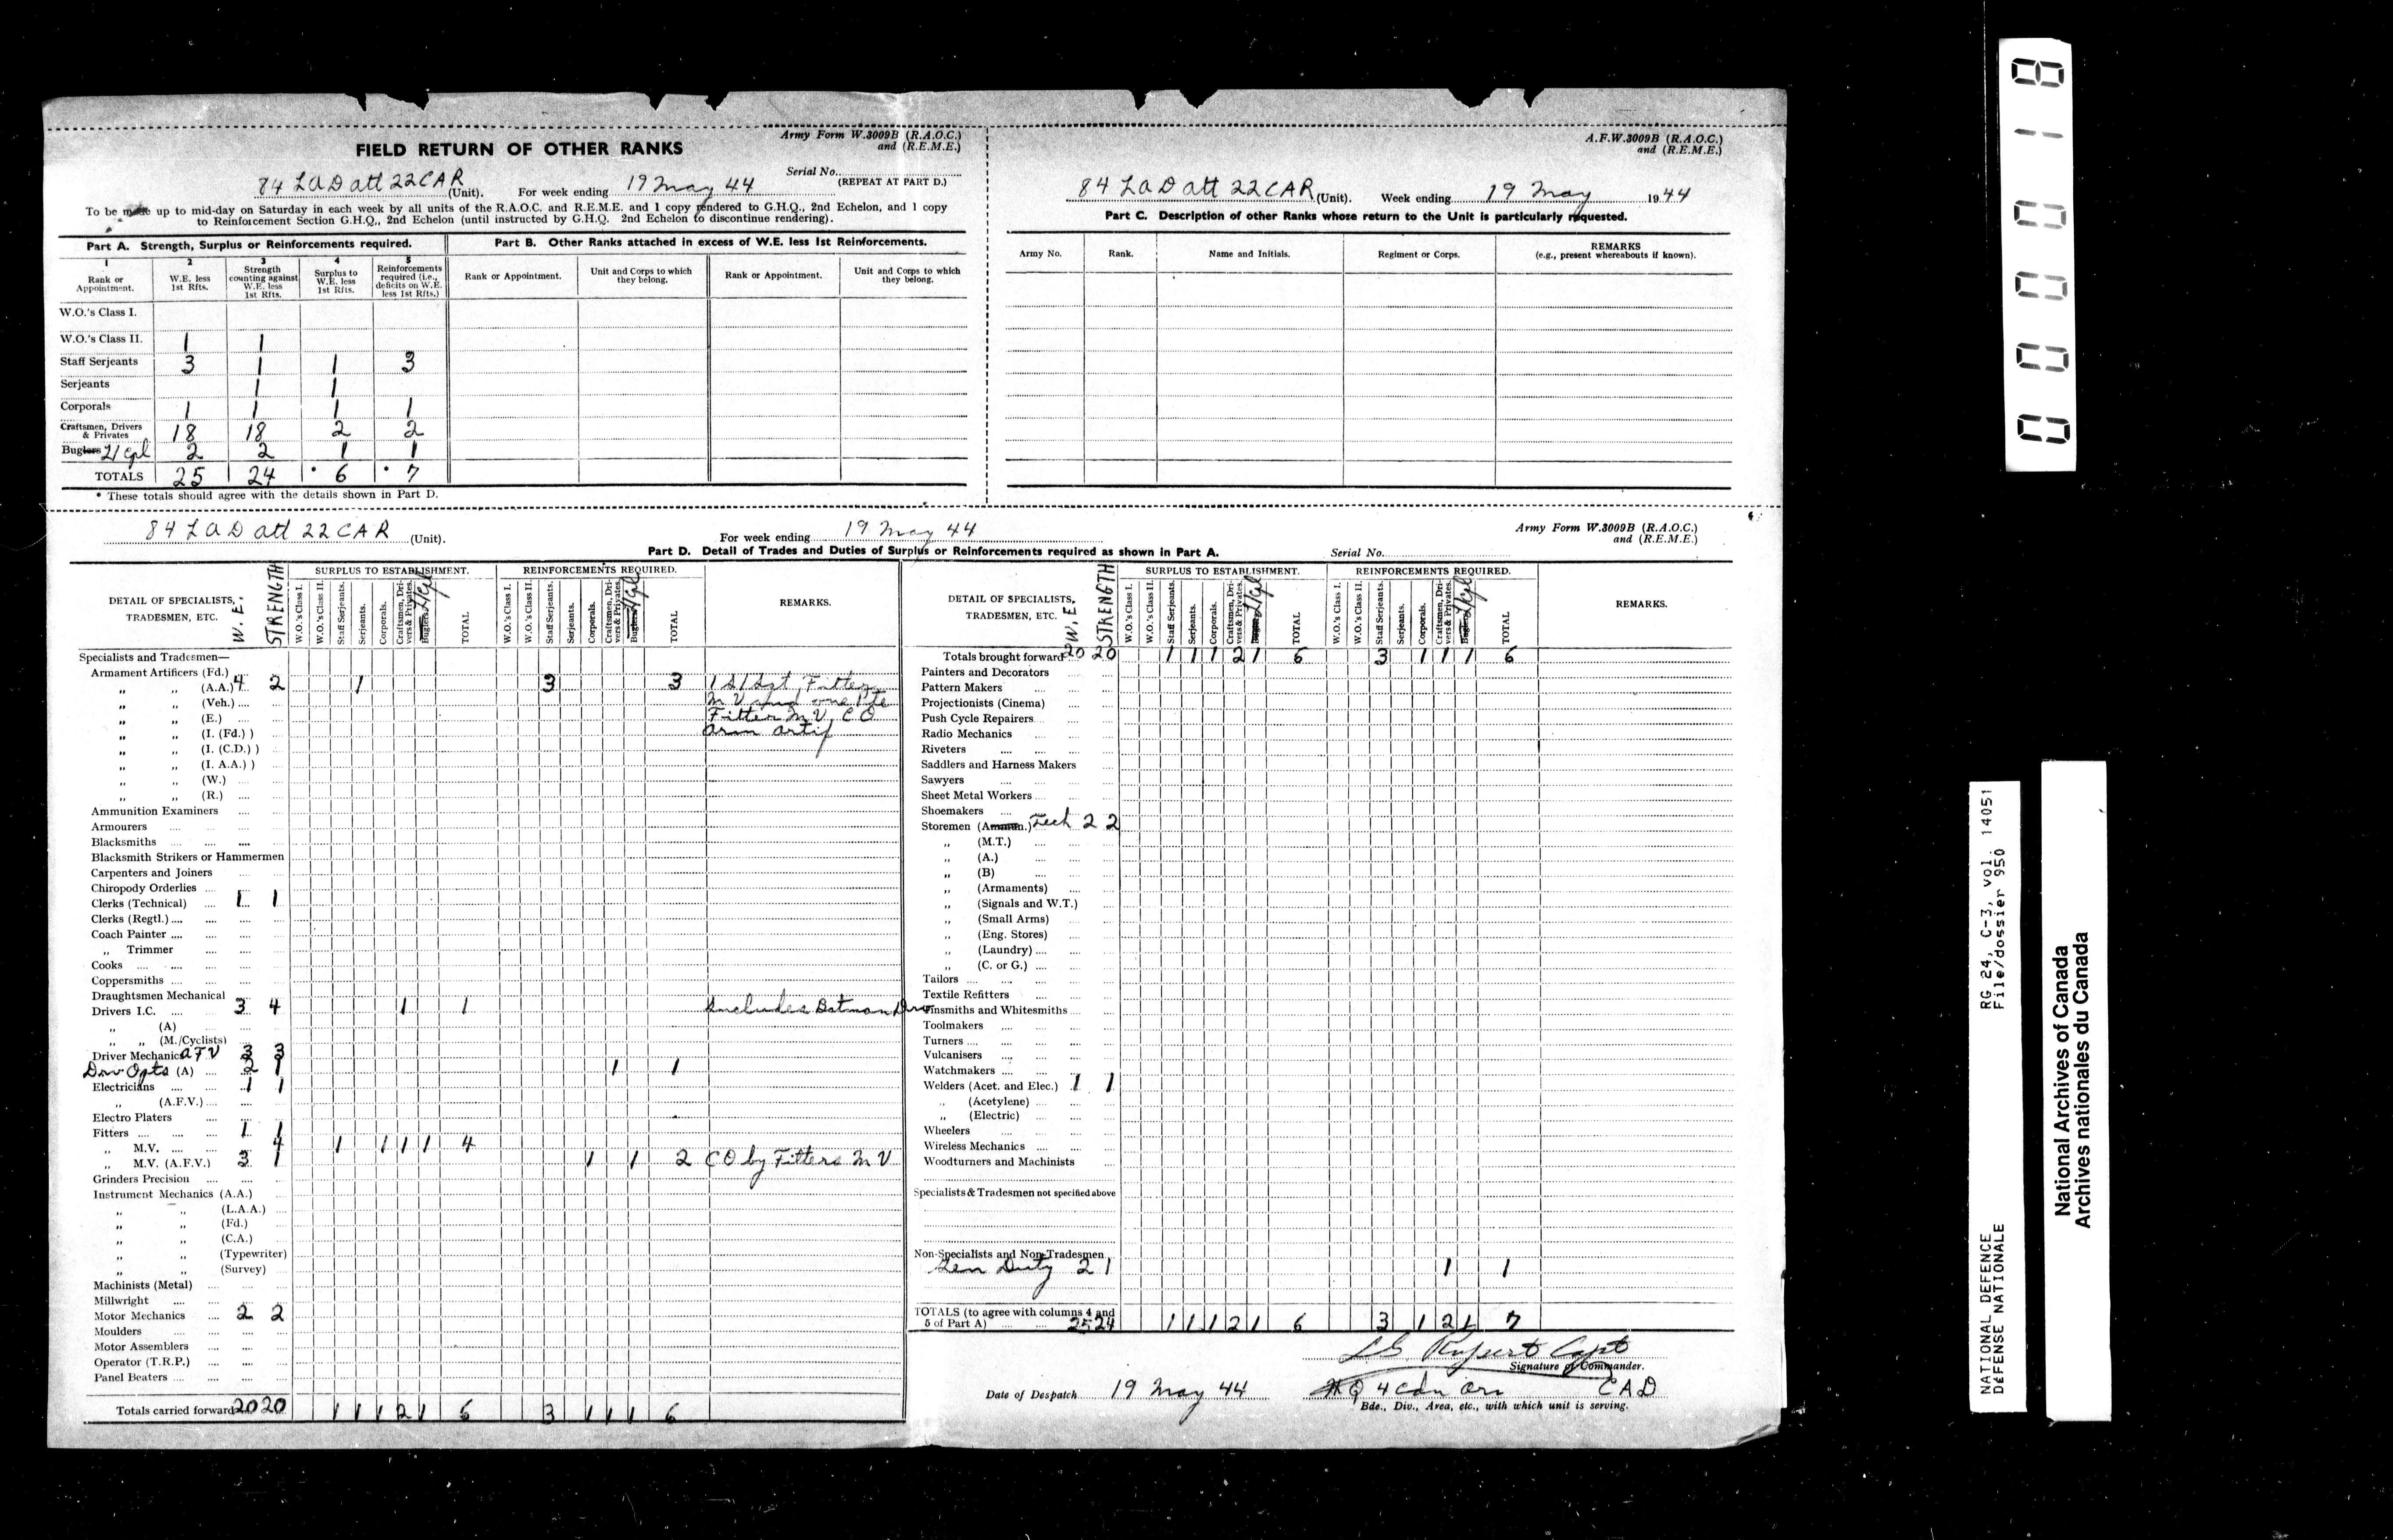 Army Form W.3009B (R.A.O.C.)
and (R.E.M.E.)
FIELD RETURN OF OTHER RANKS
Serial No.
(REPEAT AT PART D.)
84 LAD att 22 CAR (Unit). For week ending 19 May 44
To be made up to mid-day on Saturday in each week by all units of the R.A.O.C. and R.E.M.E. and 1 copy rendered to G.H.Q., 2nd Echelon, and 1 copy
to Reinforcement Section G.H.Q., 2nd Echelon (until instructed by G.H.Q. 2nd Echelon to discontinue rendering).
Part A. Strength, Surplus or Reinforcements required.
1 2 3 4 5
Rank or Appointment. W.E. less 1st Rfts. Strength counting against W.E. less 1st Rfts. Surplus to W.E. less 1st Rfts. Reinforcements required (i.e., deficits on W.E. less 1st Rfts.)
W.O.'s Class I.
W.O.'s Class II. 1 1
Staff Serjeants 3 1 1 3
Serjeants 1 1
Corporals 1 1 1 1
Craftsmen, Drivers & Privates 18 18 2 2
Buglers L/Cpl 2 2 1 1
TOTALS 25 24 * 6 * 7
* These totals should agree with the details shown in Part D.
Part B. Other Ranks attached in excess of W.E. less 1st Reinforcements.
Rank or Appointment. Unit and Corps to which they belong. Rank or Appointment. Unit and Corps to which they belong.
A.F.W.3009B (R.A.O.C.)
and (R.E.M.E.)
84 LAD att 22 CAR (Unit). Week ending 19 May 1944
Part C. Description of other Ranks whose return to the Unit is particularly requested.
Army No. Rank. Name and Initials. Regiment or Corps. REMARKS (e.g., present whereabouts if known).
84 LAD att 22 CAR (Unit). For week ending 19 May 44
Army Form W.3009B (R.A.O.C.)
and (R.E.M.E.)
Part D. Detail of Trades and Duties of Surplus or Reinforcements required as shown in Part A. Serial No.
DETAIL OF SPECIALISTS, TRADESMEN, ETC. W.E. STRENGTH
SURPLUS TO ESTABLISHMENT.
W.O.'s Class I. W.O.'s Class II. Staff Serjeants. Serjeants. Corporals. Craftsmen, Drivers & Privates. Buglers L/Cpl TOTAL
REINFORCEMENTS REQUIRED.
W.O.'s Class I. W.O.'s Class II. Staff Serjeants. Serjeants. Corporals. Craftsmen, Drivers & Privates. Buglers L/Cpl TOTAL
REMARKS.
Specialists and Tradesmen—
Armament Artificers (Fd.)
,, ,, (A.A.) 4 2 1 3 3 1 S/Sgt Fitter
,, ,, (Veh.) M V and one Pte
,, ,, (E.) Fitter M V, C O
,, ,, (I. (Fd.) ) arm artif
,, ,, (I. (C.D.) )
,, ,, (I. A.A.) )
,, ,, (W.)
,, ,, (R.)
Ammunition Examiners
Armourers
Blacksmiths
Blacksmith Strikers or Hammermen
Carpenters and Joiners
Chiropody Orderlies
Clerks (Technical) 1 1
Clerks (Regtl.)
Coach Painter
,, Trimmer
Cooks
Coppersmiths
Draughtsmen Mechanical
Drivers I.C. 3 4 1 1 Includes Batman Dvr
,, (A)
,, ,, (M./Cyclists)
Driver Mechanics AFV 3 3
Dvr Opts (A) 2 1 1 1
Electricians 1 1
,, (A.F.V.)
Electro Platers
Fitters 1 1
,, M.V. 4 1 1 1 1 4
,, M.V. (A.F.V.) 3 1 1 1 2 CO by Fitters M V
Grinders Precision
Instrument Mechanics (A.A.)
,, ,, (L.A.A.)
,, ,, (Fd.)
,, ,, (C.A.)
,, ,, (Typewriter)
,, ,, (Survey)
Machinists (Metal)
Millwright
Motor Mechanics 2 2
Moulders
Motor Assemblers
Operator (T.R.P.)
Panel Beaters
Totals carried forward 20 20 1 1 1 2 1 6 3 1 1 1 6
DETAIL OF SPECIALISTS, TRADESMEN, ETC. W.E. STRENGTH
SURPLUS TO ESTABLISHMENT.
W.O.'s Class I. W.O.'s Class II. Staff Serjeants. Serjeants. Corporals. Craftsmen, Drivers & Privates. Buglers L/Cpl TOTAL
REINFORCEMENTS REQUIRED.
W.O.'s Class I. W.O.'s Class II. Staff Serjeants. Serjeants. Corporals. Craftsmen, Drivers & Privates. Buglers L/Cpl TOTAL
REMARKS.
Totals brought forward 20 20 1 1 1 2 1 6 3 1 1 1 6
Painters and Decorators
Pattern Makers
Projectionists (Cinema)
Push Cycle Repairers
Radio Mechanics
Riveters
Saddlers and Harness Makers
Sawyers
Sheet Metal Workers
Shoemakers
Storemen (Ammn.) Tech 2 2
,, (M.T.)
,, (A.)
,, (B)
,, (Armaments)
,, (Signals and W.T.)
,, (Small Arms)
,, (Eng. Stores)
,, (Laundry)
,, (C. or G.)
Tailors
Textile Refitters
Tinsmiths and Whitesmiths
Toolmakers
Turners
Vulcanisers
Watchmakers
Welders (Acet. and Elec.) 1 1
,, (Acetylene)
,, (Electric)
Wheelers
Wireless Mechanics
Woodturners and Machinists
Specialists & Tradesmen not specified above
Non-Specialists and Non-Tradesmen
Gen Duty 2 1 1 1
TOTALS (to agree with columns 4 and 5 of Part A) 25 24 1 1 1 2 1 6 3 1 2 1 7
Capt
Signature of Commander.
Date of Despatch 19 May 44 HQ 4 Cdn CAD
Bde., Div., Area, etc., with which unit is serving.
000018
RG 24, C-3, vol. 14051
File/dossier 950
NATIONAL DEFENCE
DÉFENSE NATIONALE
National Archives of Canada
Archives nationales du Canada